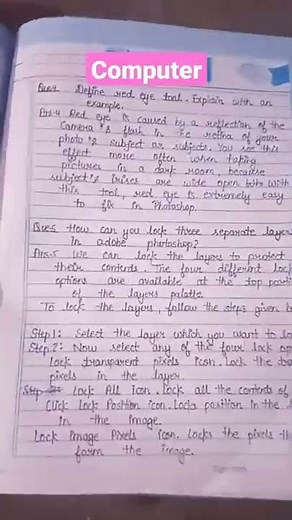 Computer
Que4 Define red eye tool. Explain with an
example.
Ans.4 Red eye is caused by a reflection of the
camera's flash in the retina of your
photo's subject or subjects. You see this
effect more often when taking
pictures in a dark room, because
subject's irises are wide open With
this tool, red eye is extremely easy
to fix in Photoshop.
Que5 How can you lock three separate layer
in adobe photoshop?
Ans.5 We can lock the layers to protect
their contents. The four different lock
options are available at the top
of the layers palatte.
To lock the layers, follow the steps given
Step 1: Select the layer which you want to
Step.2: Now select any of the four lock
Lock transparent pixels icon. Lock the
pixels in the layer
Lock All icon. Lock all the contents of
Click Lock Position icon. Locks position in the
in the image.
Lock Image Pixels icon. Locks the pixels
form the image.